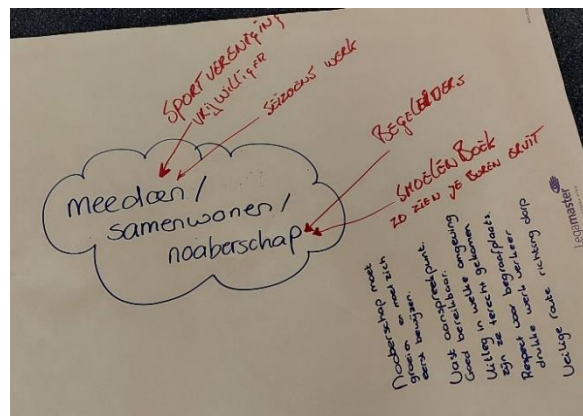 SPORTVERENIGING
VRIJWILLIGER
SEIZOENS WERK
BEGELEIDERS
SMOELENBOEK
ZO ZIEN JE BUREN ERUIT
meedoen/
samenwonen/
noaberschap
Noaberschap moet
groeien en moet zich
eerst bewijzen.
Vast aanspreekpunt.
Goed bereikbaar.
Uitleg in welke omgeving
zijn ze terecht gekomen
Respect voor begraafplaats.
drukke werk verkeer
Veilige route richting dorp
Legamaster